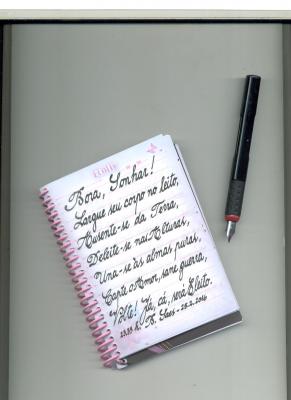 Bora, Sonhar!
Largue seu corpo no leito,
Ausente-se da Terra,
Deleite-se nas Alturas,
Una-se às almas puras,
Capte o Amor, sane guerra,
Volte! Já, cá, será Eleito.